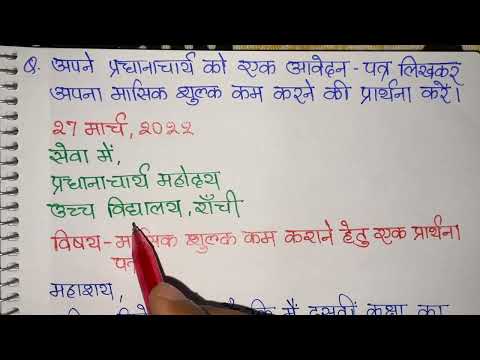 Q. अपने प्रधानाचार्य को एक आवेदन-पत्र लिखकर
अपना मासिक शुल्क कम करने की प्रार्थना करें।
27 मार्च, 2022
सेवा में,
प्रधानाचार्य महोदय
उच्च विद्यालय, राँची
विषय - मासिक शुल्क कम कराने हेतु एक प्रार्थना
महाशय,
कि मैं दसवीं कक्षा का